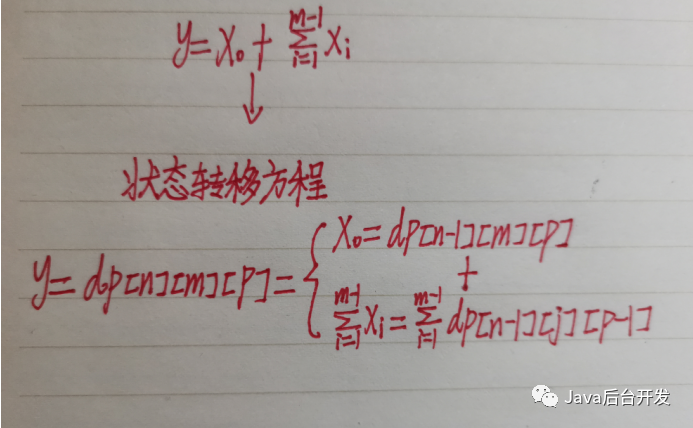 y=x₀+∑_{i=1}^{m-1}x_i
↓
状态转移方程
y=dp[n][m][p]={x₀=dp[n-1][m][p]
+
∑_{i=1}^{m-1}x_i=∑_{i=1}^{m-1}dp[n-1][j][p-1]
Java后台开发